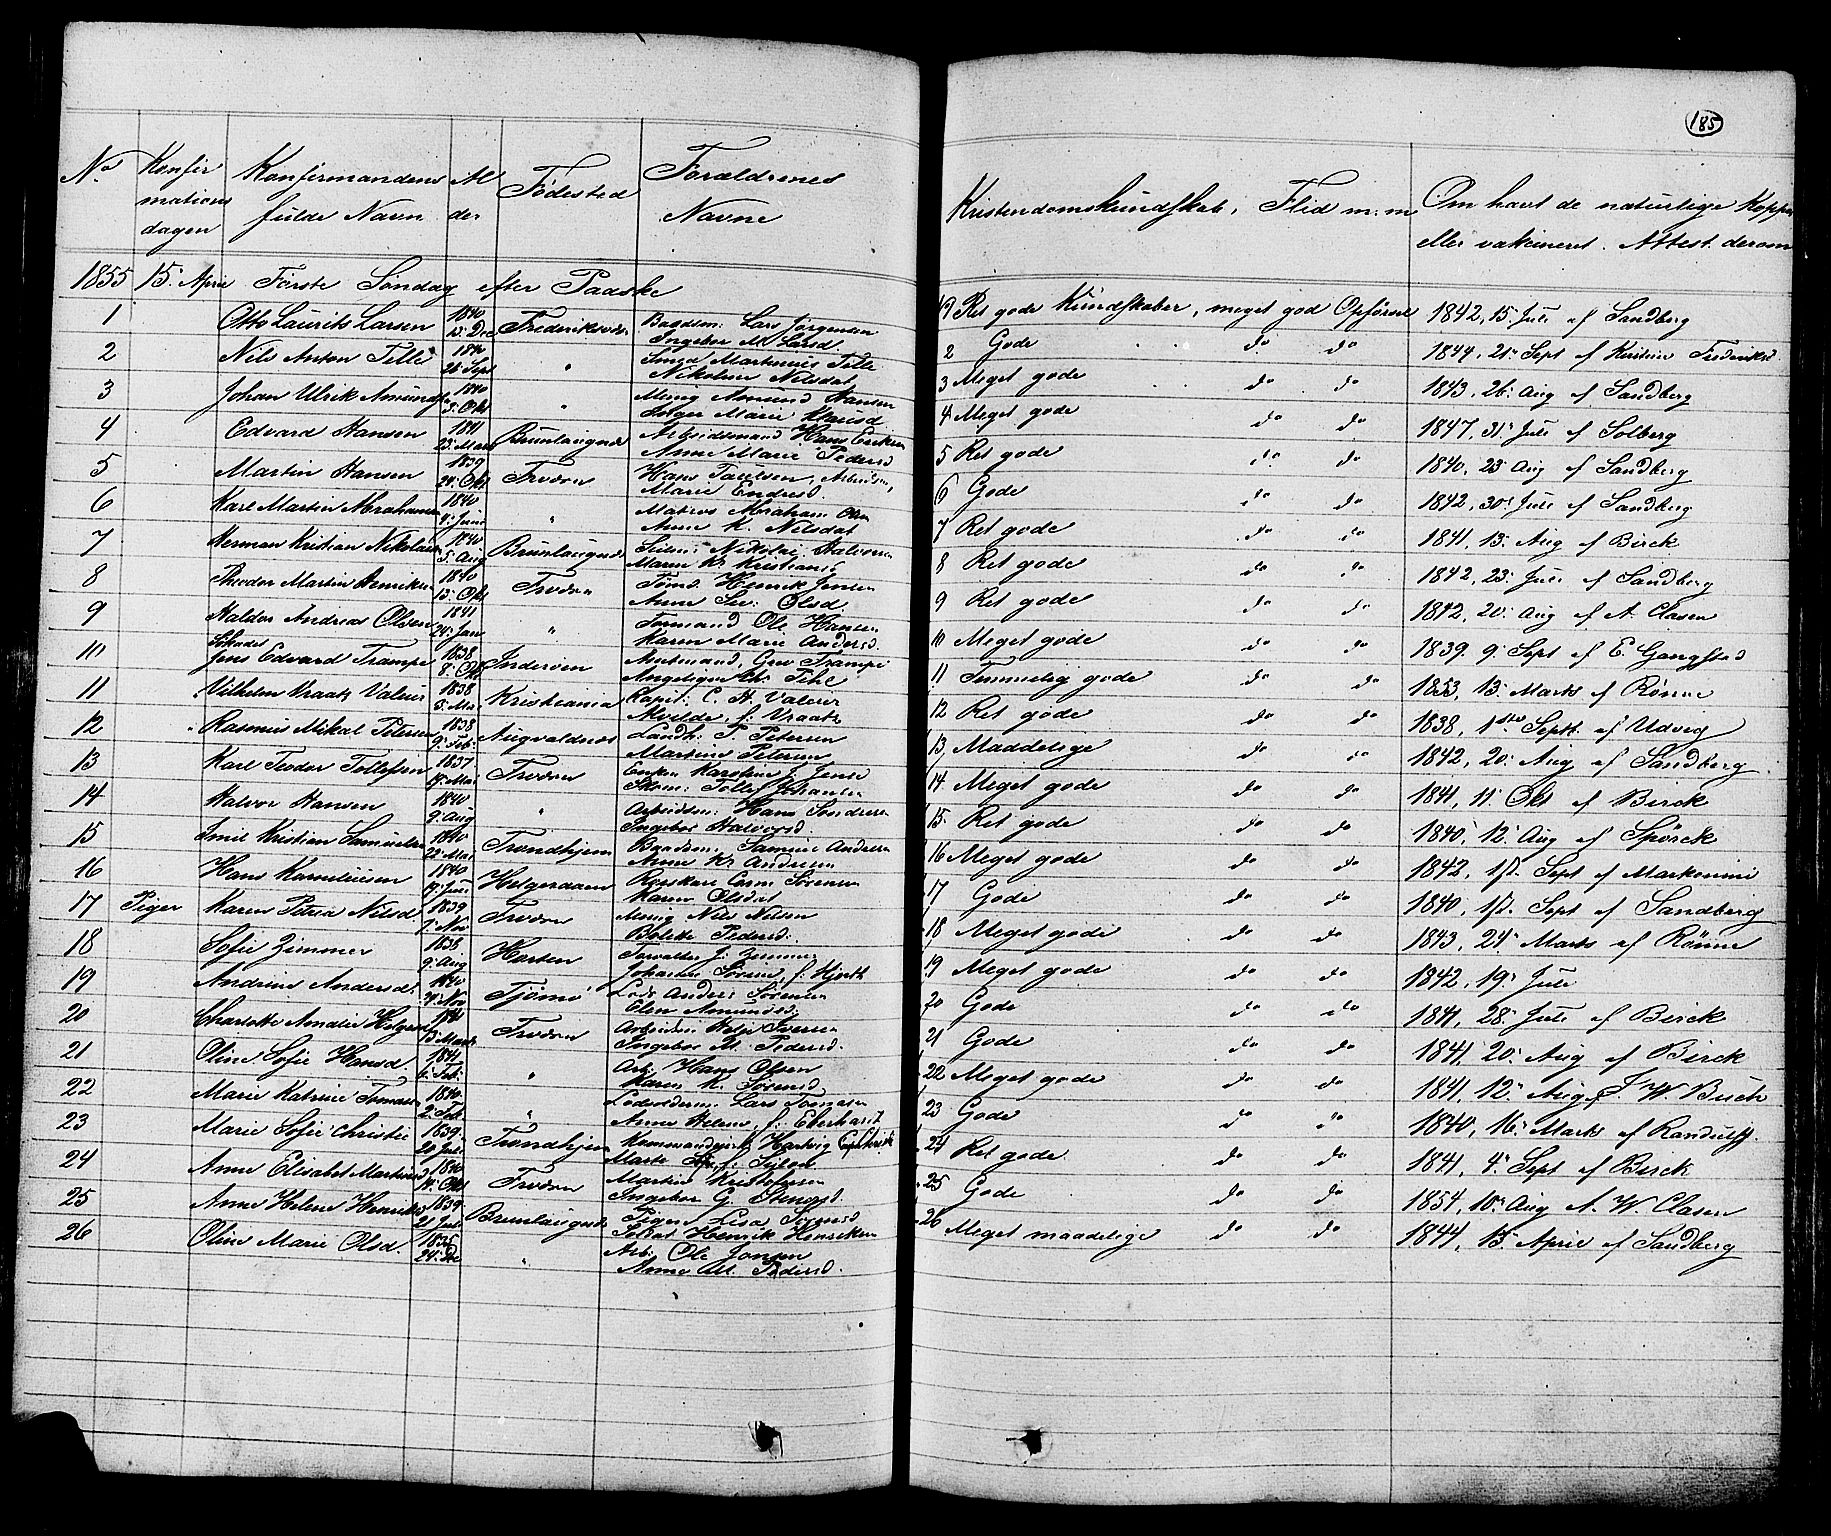 185
No Konfirmationsdagen Konfirmandens fulde Navn Alder Fødested Forældrenes Navne
Kristendomskundskab, Flid m.m. Om havt de naturlige Kopper eller vakcineret. Attest derom
1855 15. April Første Søndag efter Paaske
1 Otto Laurits Larsen 1840 Lars Jørgensen
Ingebor M. Larsd
2 Nils Anton Telle 1840 26 Sept " Smed Martenius Telle
Nikoline Nilsdat
3 Johan Ulrik Amunds 1840 3. Okt " Amund Hansen
Marie
4 Edvard Hansen 1841 23. Mars Brunlaugnes Arbeidsmand Hans Eriksen
Anne Marie Pedersd
5 Martin Hansen 1839 24. Okt Tredvn Hans Paulsen, Arbeidsm,
Marie Endresd
6 Karl Martin Abrahamsen 1840 4. Juni " Matros Abraham Olsen
Anne K. Nilsdat
7 Herman Kristian Nikolaisen 1840 5. Aug Brunlaugnes Nikolai Halvorsen
Maren K. Kristiansd
8 Theodor Martin Henriksen 1840 13. Okt Henrik Jensen
Anne Olsd.
9 Haldor Andreas Olsen 1841 24. Jan " Tormand Ole Hansen
Karen Marie Andersd.
10 Jens Edvard Trampe 1838 8. Okt Inderøen Amtmand, Grev Trampe
11 Vilhelm Kraatz Valeur 1838 Kristiania Kapit. C. H. Valeur
12 Rasmus Mikal Petersen 1838 9. Feb. Augvaldnes Landh. P. Petersen
Martine Petersen
13 Karl Teodor Tollefsen 1837 Enken Karoline f. Jense
Tollef Johansen
14 Halvor Hansen 1840 9. Aug " Arbeidsm: Hans
Ingebor Halvorsd.
15 Emil Kristian Samuelsen 1840 Trondhjem Baadsm: Samuel Andersen
Anne Kr. Andersen
16 Hans Korneliusen 1840 Helgeroaen Sørensen
Karen Olsdat
17 Piger Karen Petrea Nilsd. 1839 7. Nov Nils Nilsen
Bolette Pedersd.
18 Sofie Zimmer 1838 9. Aug Horten Forvalter J. Zimmer
Johanne Sørine, f. Hjorth
19 Andrine Andersd. 1840 Tjømø Lods Anders Sørensen
Elen Amundsd.
20 Charlotte Amalie Helgesen 13 Marts Arbeidsm Helge Iversen
Ingebor M. Pedersd.
21 Oline Sofie Hansd. 1841 6. Feb. " Arb. Hans Olsen
Karen K. Sørensd
22 Marie Katrine 1840 2. Feb " Lars
Anne Helene, f: Eberhardt
23 Marie Sofie Christie 1839. 20 Juli Trondhjem Hartvig
24 Anne Elisabet 1840 Okt Martin Kristofersen
Ingebor G.
25 Anne Helene Henriksd 1839 Brunlaugnes Pigen Lisa Sørensd
Soldat Henrik Henriksen
26 Oline Marie Olsd. 1835 24. De " Arb. Ole Jonsen
Anne M. Pedersd.
1 Ret gode Kundskaber, meget god Opførsel 1842, 15. Juli af Sandberg
2 Gode do do 1844, 21. Sept af Kirstein
3 Meget gode do do 1843, 26. Aug af Sandberg
4 Meget gode do do 1847, 31. Juli af Solberg
5 Ret gode do do 1840, 23 Aug af Sandberg
6 Gode do do 1842, 30. Juli af Sandberg
7 Ret gode do do 1841, 13. Aug af Birck
8 Ret gode do do 1842, 23. Juli af Sandberg
9 Ret gode do do 1842, 20. Aug af A. Clasen
10 Meget gode do do 1839. 9. Sept af E Gangstad
11 Temmelig gode do do 1853, 13. Marts af Rønne
12 Ret gode do do 1838, 1ste Septb. af Udvig
13 Maadelige do do 1842, 20. Aug af Sandberg.
14 Meget gode do do 1841, 11. Okt af Birck
15. Ret gode do do 1840, 12. Aug af Spørck
16 Meget gode do do 1842, 1st. Sept af
17 Gode do do 1840, 1st. Sept af Sandberg
18 Meget gode do do 1843, 24. Marts af Rønne
19 Meget gode do do 1842, 19. Juli
20 Gode do do 1841, 28. Juli af Birck
21 Gode do do 1841, 20. Aug af Birck
22 Meget gode do do 1841, 12. Aug, J. W. Buch
23 Gode do do 1840, 16. Marts af Randulff.
24 Ret gode do do 1841, 4. Sept af Birck
25 Gode do do 1854, 10. Aug A. W. Clasen
26 Meget maadelige do do 1844, 15. April af Sandberg